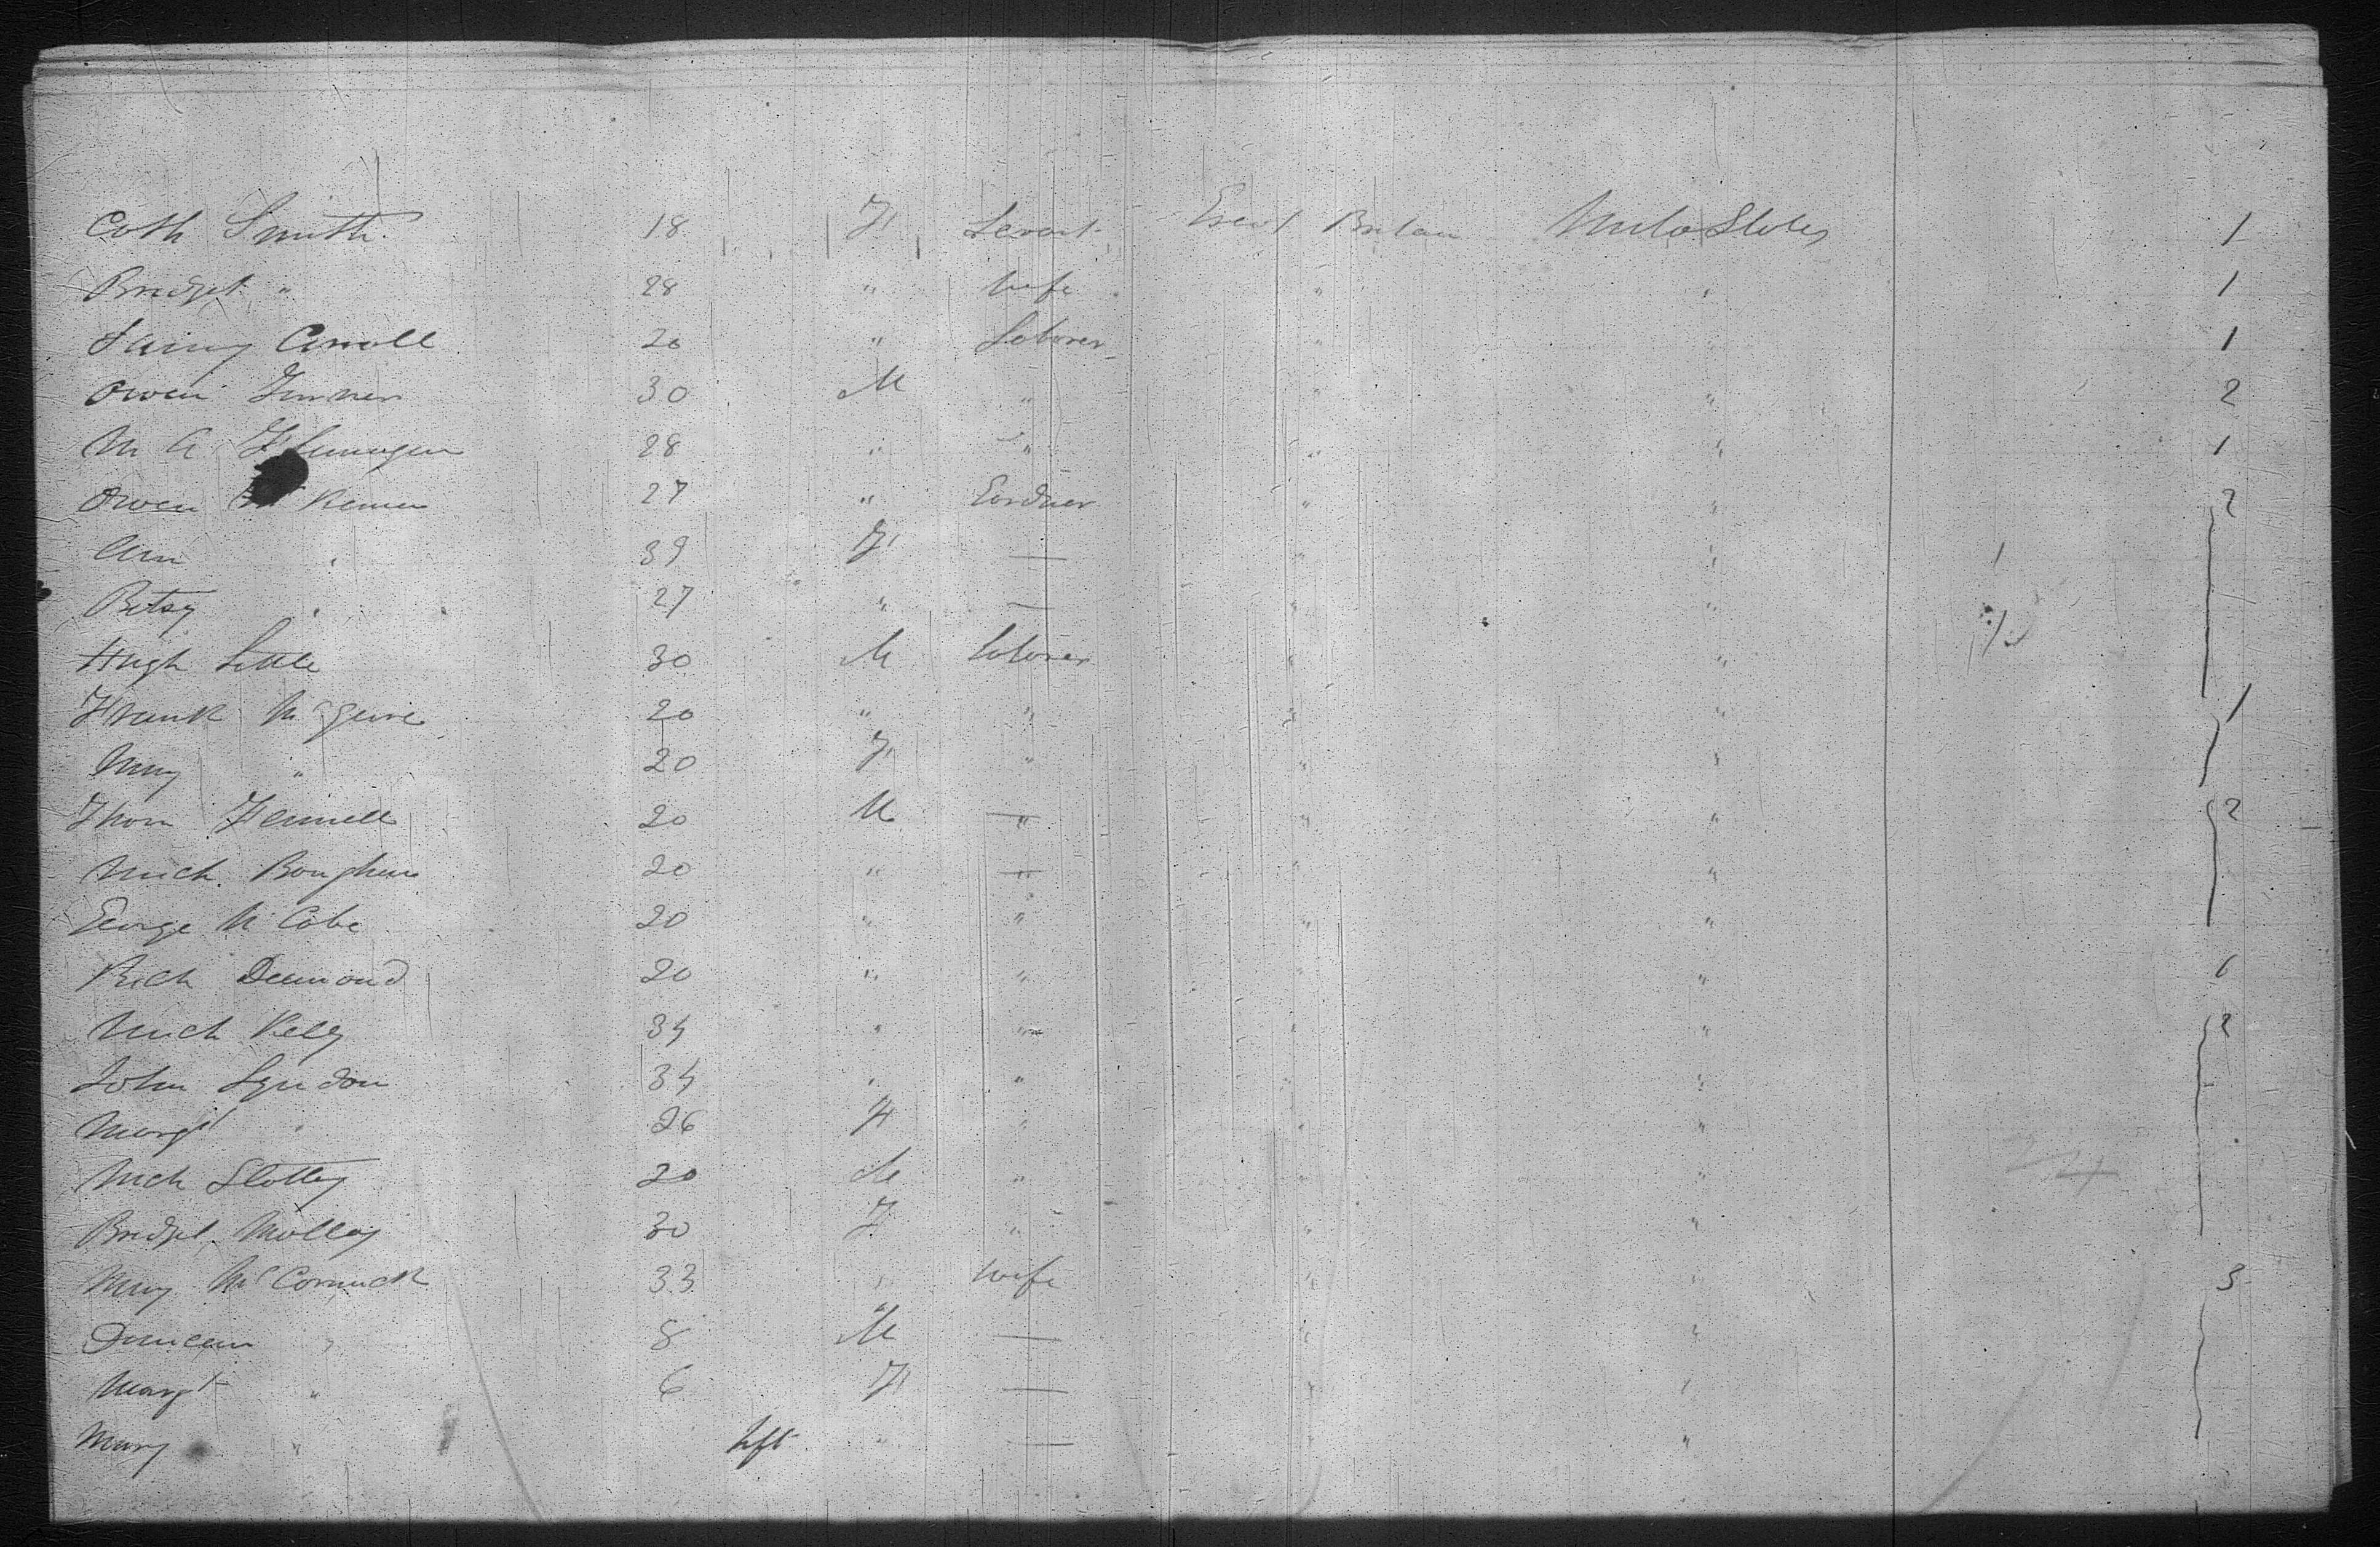 Cath Smith 18 F Servant Great Britain United States 1
Bridget " 28 " wife " " 1
Fanny Carroll 20 " Laborer " " 1
Owen Turner 30 M " " " 2
M A Flannagan 28 " " " " 1
Owen Mc Kenna 27 " Gardner " " 2
Ann " 39 F — " " 1
Betsy " 27 " — " "
Hugh Little 30 M laborer " "
Frank McGuire 20 " " " " 1
Mary " 20 F " " "
Thom Fennell 20 M " " " 2
Mich. 20 " " " "
George McCabe 20 " " " "
Rich Desmond 20 " " " "
Mich Kelly 34 " " " " 2
John Lyndon 34 " " " "
Margt " 26 F " " "
Mich Slattey 20 M " " "
Bridget Molloy 30 F " " "
Mary McCormick 33 " wife " " 3
Duncan " 8 M — " "
Margt " 6 F — " "
Mary " Inft " — " "